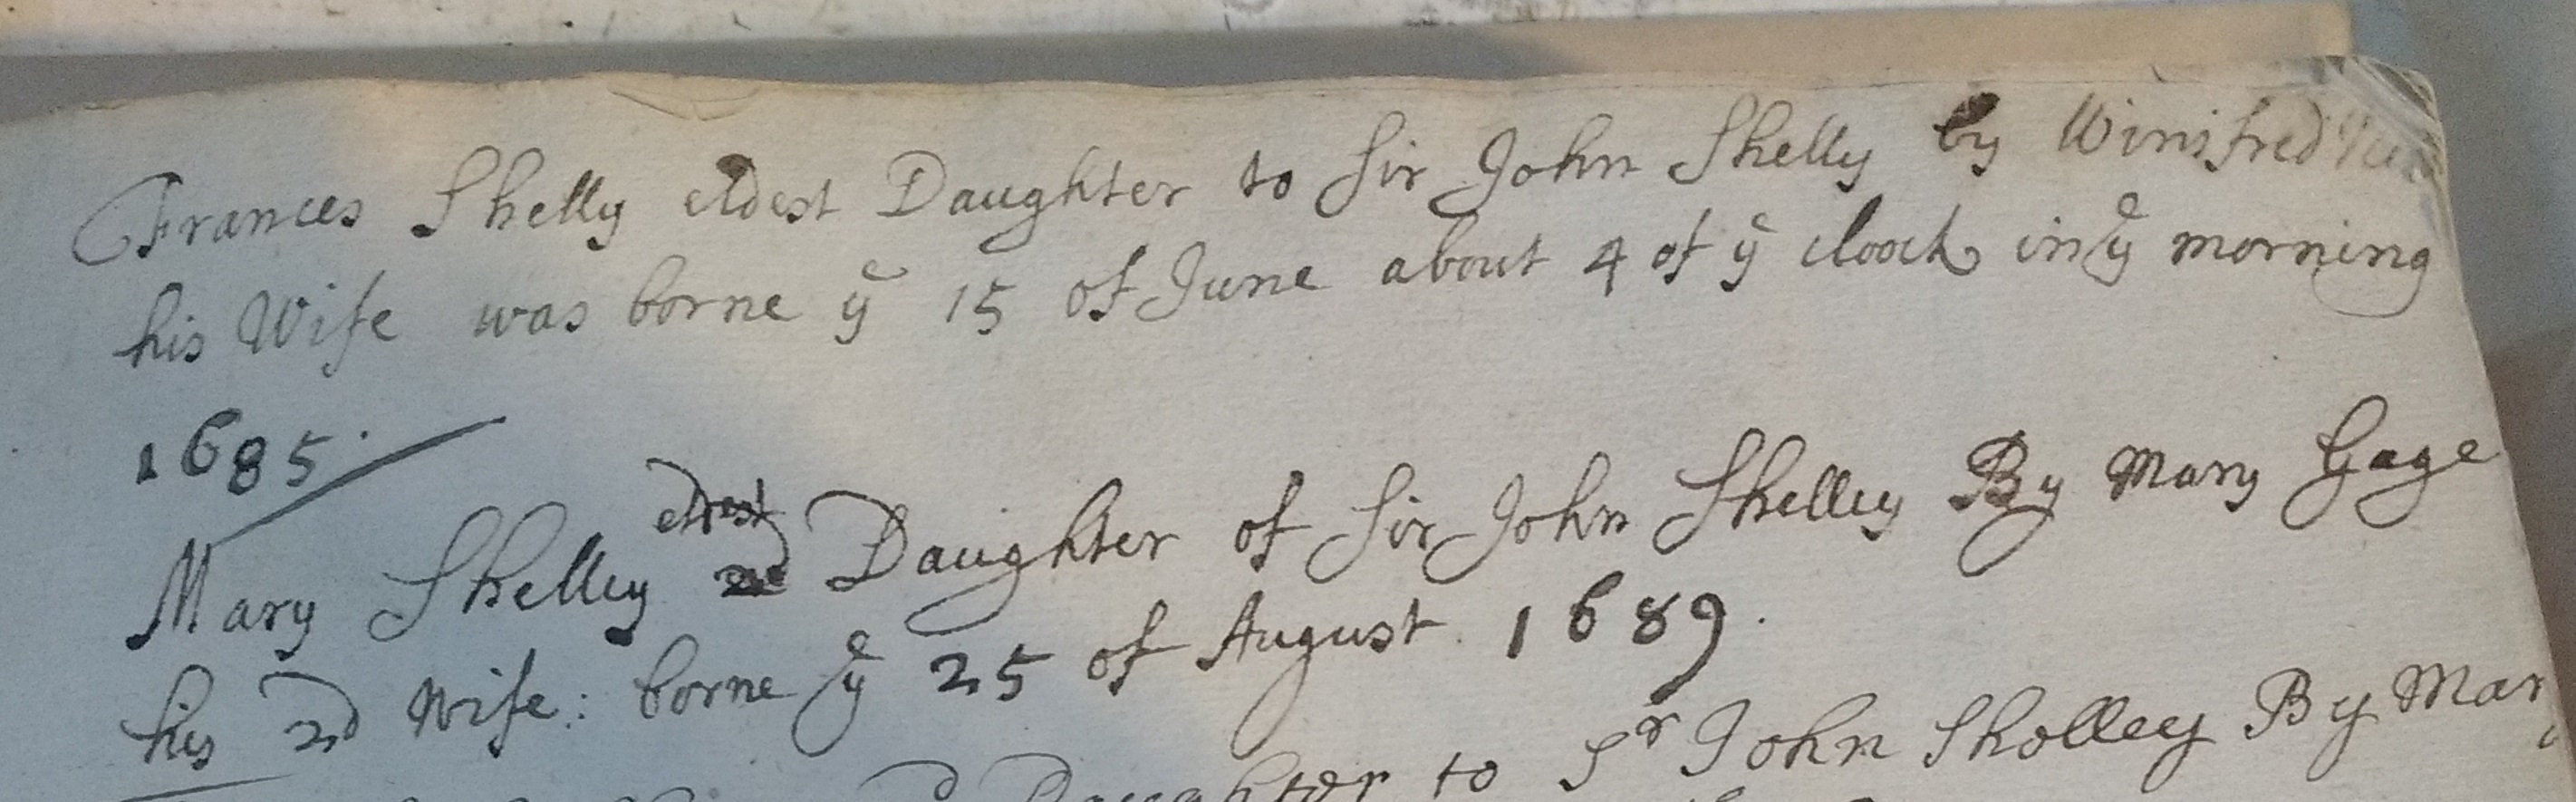 Frances Shelly eldest Daughter to Sir John Shelly by Winifred
his Wife was borne yͤ 15 of June about 4 of yͤ cloock in yͤ morning
1685.
eldest
Mary Shelley 2d Daughter of Sir John Shelley By Mary Gage
his 2d Wife: borne yͤ 25 of August 1689.
Daughter to Sʳ John Sholley By Mary